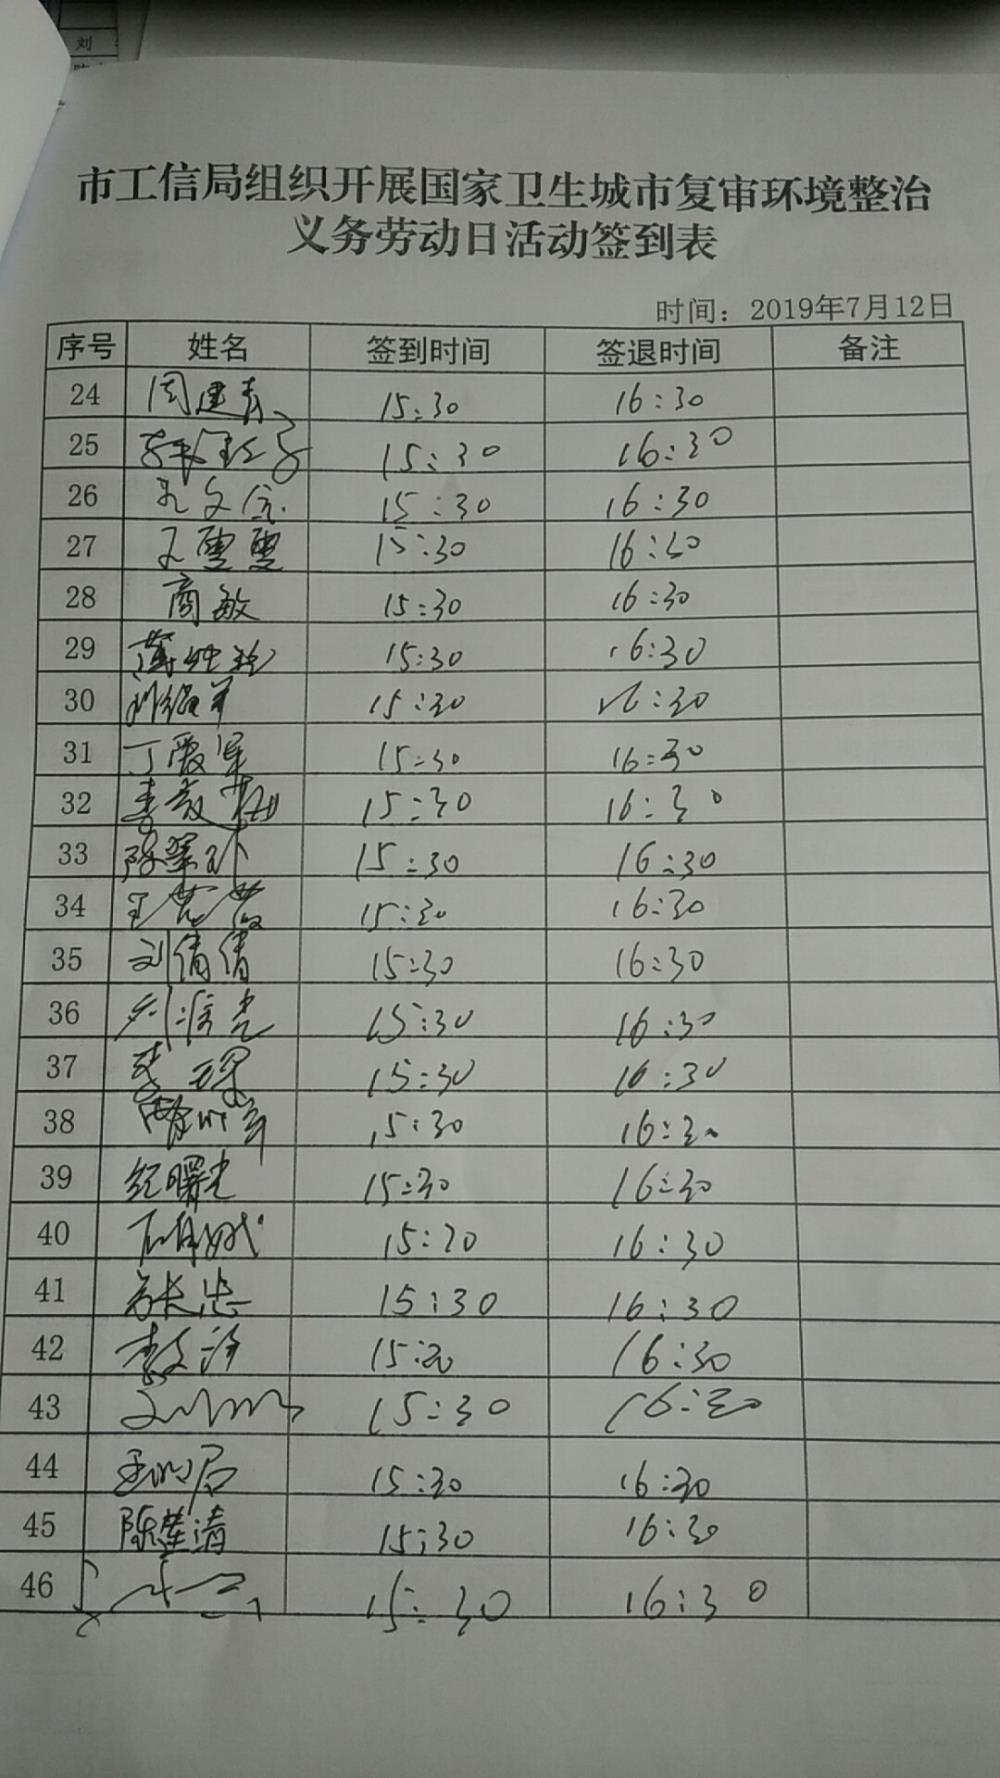 刘
市工信局组织开展国家卫生城市复审环境整治
义务劳动日活动签到表
时间：2019年7月12日
序号 姓名 签到时间 签退时间 备注
24 15:30 16:30
25 15:30 16:30
26 孔文信 15:30 16:30
27 王雯雯 15:30 16:30
28 商敏 15:30 16:30
29 15:30 16:30
30 15:30 16:30
31 丁爱军 15:30 16:30
32 15:30 16:30
33 15:30 16:30
34 15:30 16:30
35 刘倩倩 15:30 16:30
36 15:30 16:30
37 15:30 16:30
38 15:30 16:30
39 纪曙光 15:30 16:30
40 15:30 16:30
41 15:30 16:30
42 15:30 16:30
43 15:30 16:30
44 15:30 16:30
45 陈莲清 15:30 16:30
46 15:30 16:30